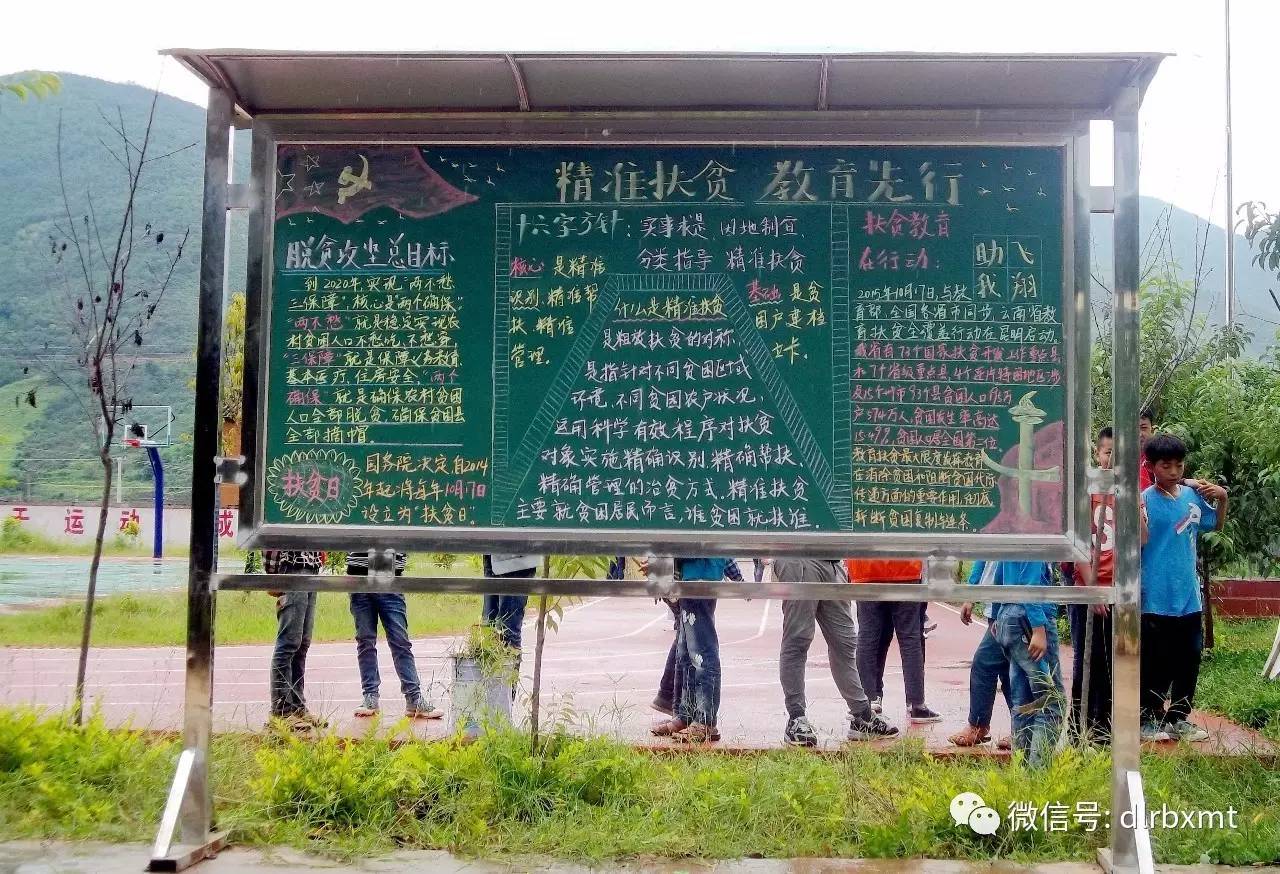 精准扶贫 教育先行
脱贫攻坚总目标
到2020年实现"两不愁
三保障",核心是"两个确保"
"两不愁"就是稳定实现农
村贫困人口不愁吃、不愁穿
"三保障"就是保障义务教育、
基本医疗、住房安全。"两个
确保"就是确保农村贫困
人口全部脱贫,确保贫困县
全部摘帽。
扶贫日
国务院决定自2014
年起将每年10月17日
设立为"扶贫日"。
十六字方针:实事求是、因地制宜、
分类指导 精准扶贫
核心是精准
识别、精准帮
扶、精准
管理。
基础是贫
困户建档
立卡。
什么是精准扶贫
是粗放扶贫的对称,
是指针对不同贫困区域
环境、不同贫困农户状况,
运用科学有效程序对扶贫
对象实施精确识别、精确帮扶、
精确管理的治贫方式。精准扶贫
主要就贫困居民而言,谁贫困就扶谁.
扶贫教育
在行动:
助飞
我翔
2015年10月17日,与教
育部、全国各省市同步,云南省教
育扶贫全覆盖行动在昆明启动。
我省有73个国家扶贫开发工作重点县,
和7个省级重点县,4个连片特困地区涉
及
574万人,贫困发生率高达
15.49%,贫困人口居全国第二位
教育扶贫最大限度发挥教育
在消除贫困和阻断贫困代际
传递方面的重要作用,彻底
斩断贫困复制链条。
工 运动 成
微信号: dlrbxmt